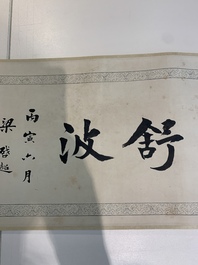 舒波
丙寅六月
梁啓超